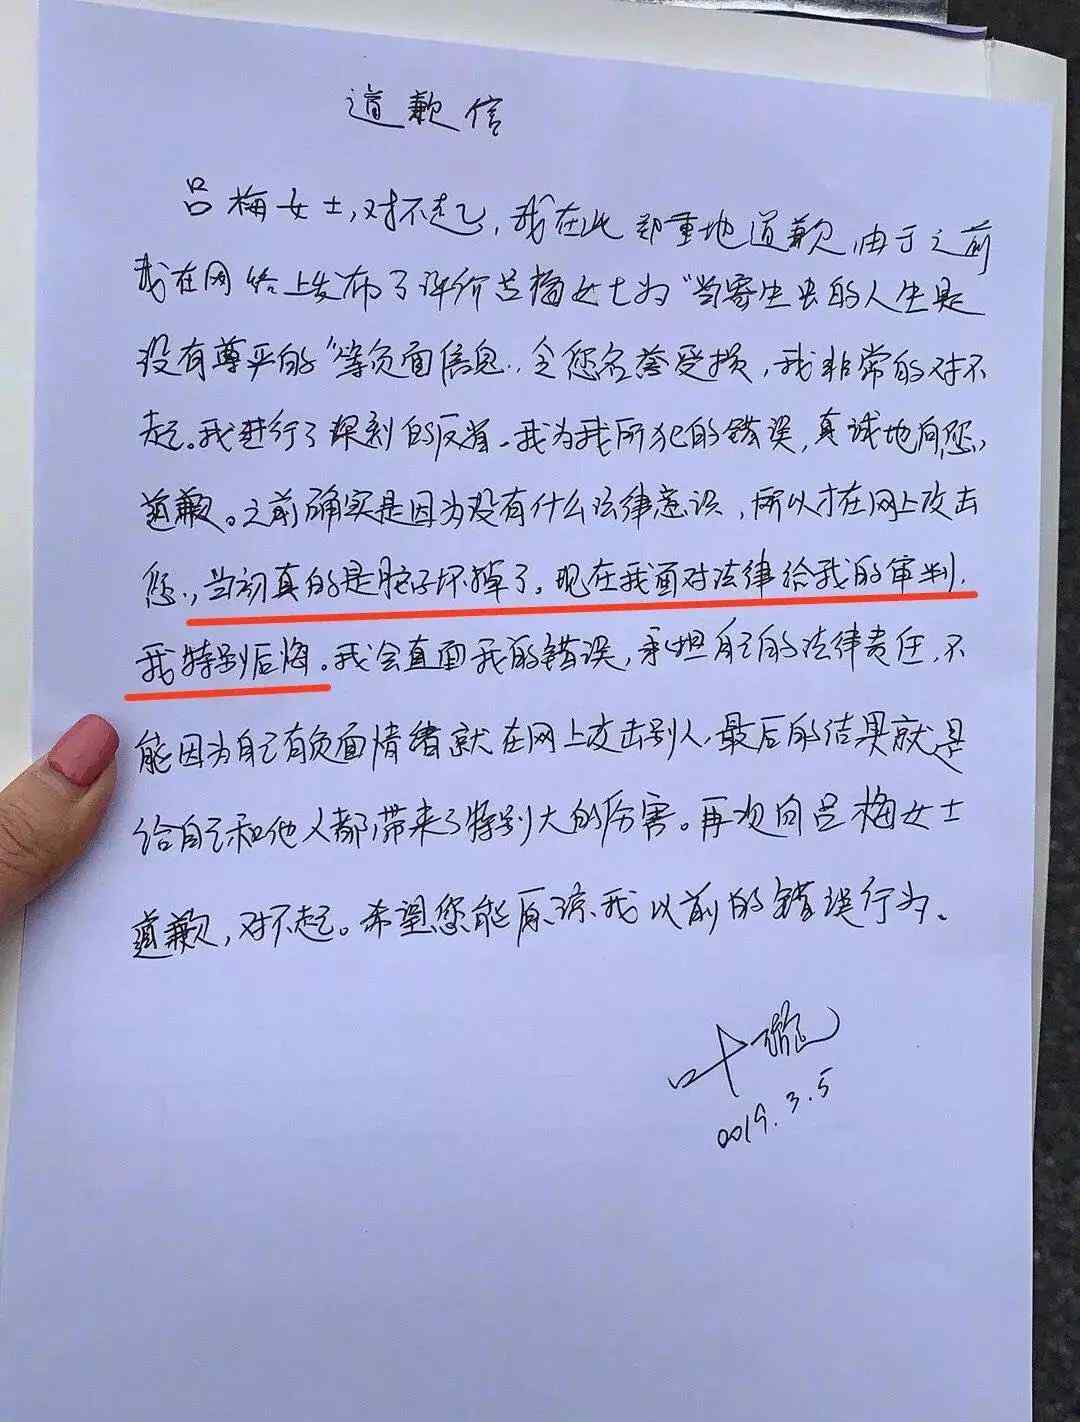 道歉信
吕梅女士，对不起，我在此郑重地道歉，由于之前
我在网络上发布了评价吕梅女士为“当寄生虫的人生是
没有尊严的”等负面信息，令您名誉受损，我非常的对不
起。我进行了深刻的反省。我为我所犯的错误，真诚地向您
道歉。之前确实是因为没有什么法律意识，所以才在网上攻击
您，当初真的是脑子坏掉了。现在我面对法律给我的审判，
我特别后悔。我会直面我的错误，承担自己的法律责任，不
能因为自己有负面情绪就在网上攻击别人，最后的结果就是
给自己和他人都带来了特别大的伤害。再次向吕梅女士
道歉，对不起。希望您能原谅我以前的错误行为。
叶璇
2019.3.5